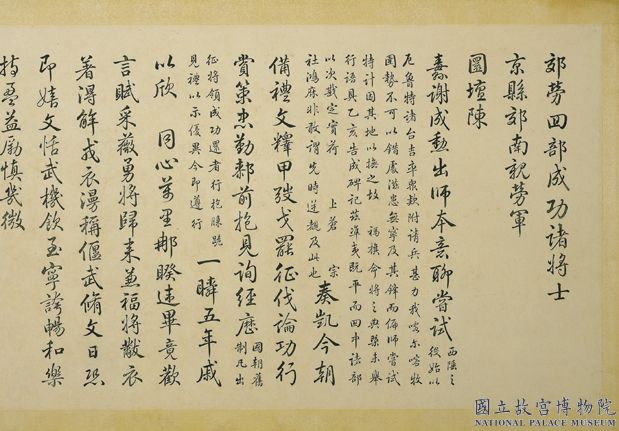 郊勞回部成功諸將士
京縣郊南親勞軍
圜壇陳
嘉謝成勳出師本意聊嘗試西陲之
役始以
厄魯特諸台吉率眾款附請兵甚力我喀爾喀牧
圉勢不可以錯處滋患無寧及其鋒而偏師嘗試
特計因其地以撫之故禡旗命將之典槩未舉
行語具乙亥告成碑記茲準夷既平而回中諸部
以次戡定實荷上蒼宗
社鴻庥非敢謂先時逆覩及此也奏凱今朝
備禮文釋甲弢戈罷征伐論功行
賞策忠勤鄴前抱見詢經歷國朝舊
制凡出
征將領成功還者行抱膝跪
見禮以示優異今即遵行一瞬五年戚
以欣同心萬里那睽違畢竟歡
言賦采薇勇將歸來兼福將黻衣
著得解戎衣漫稱偃武脩文日恐
即嬉文恬武機飲至寧誇暢和樂
持盈益勵慎幾微
國立故宮博物院
NATIONAL PALACE MUSEUM